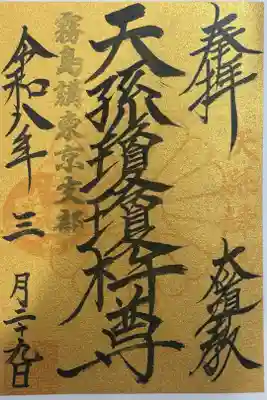 奉拝
天孫瓊瓊杵尊
霧島講東京支部
令和八年三
月二十九日